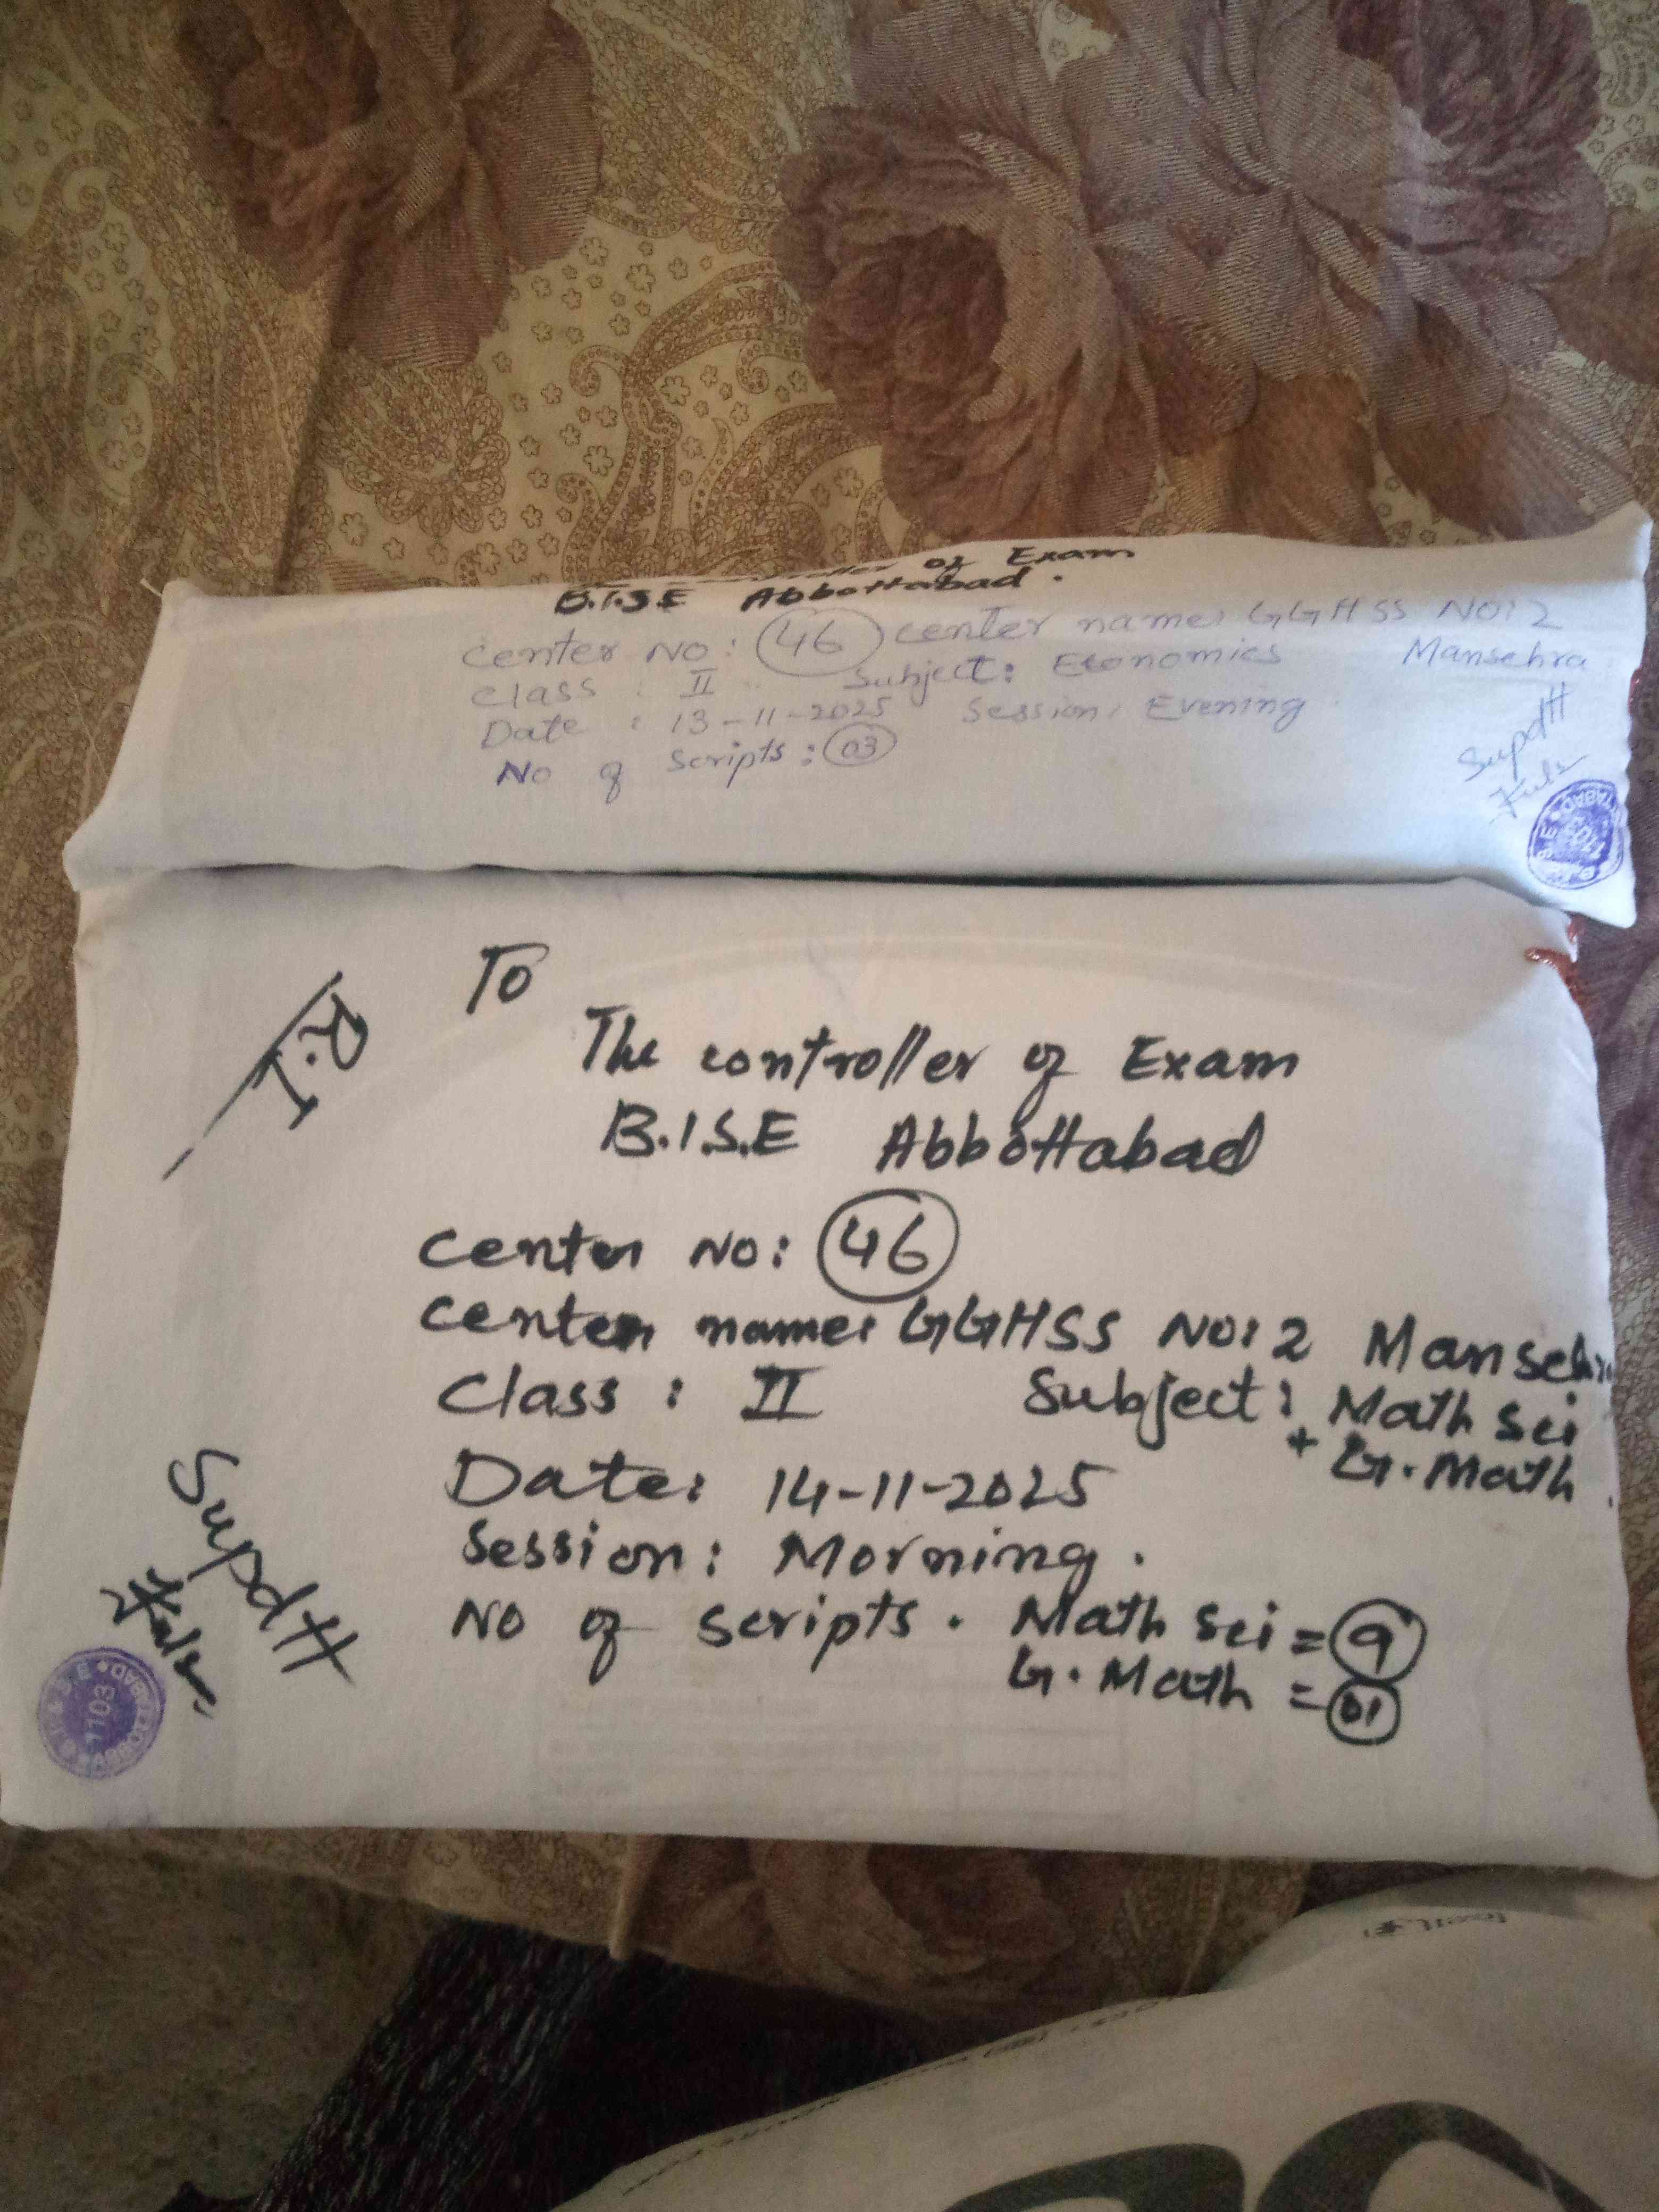 of Exam
B.I.S.E Abbottabad.
Center No: 46 center name: GGHSS No: 2
Mansehra
Class : II Subject: Economics
Date : 13-11-2025 Session: Evening
No of Scripts: 03
Supdtt
To
R.T
The controller of Exam
B.I.S.E Abbottabad
Center No: 46
Center name: GGHSS No: 2 Mansehra
Class : II Subject: Math Sci
+ G.Math.
Date: 14-11-2025
Session: Morning.
No of scripts. Math Sci = 9
G.Math = 01
Supdtt
1103